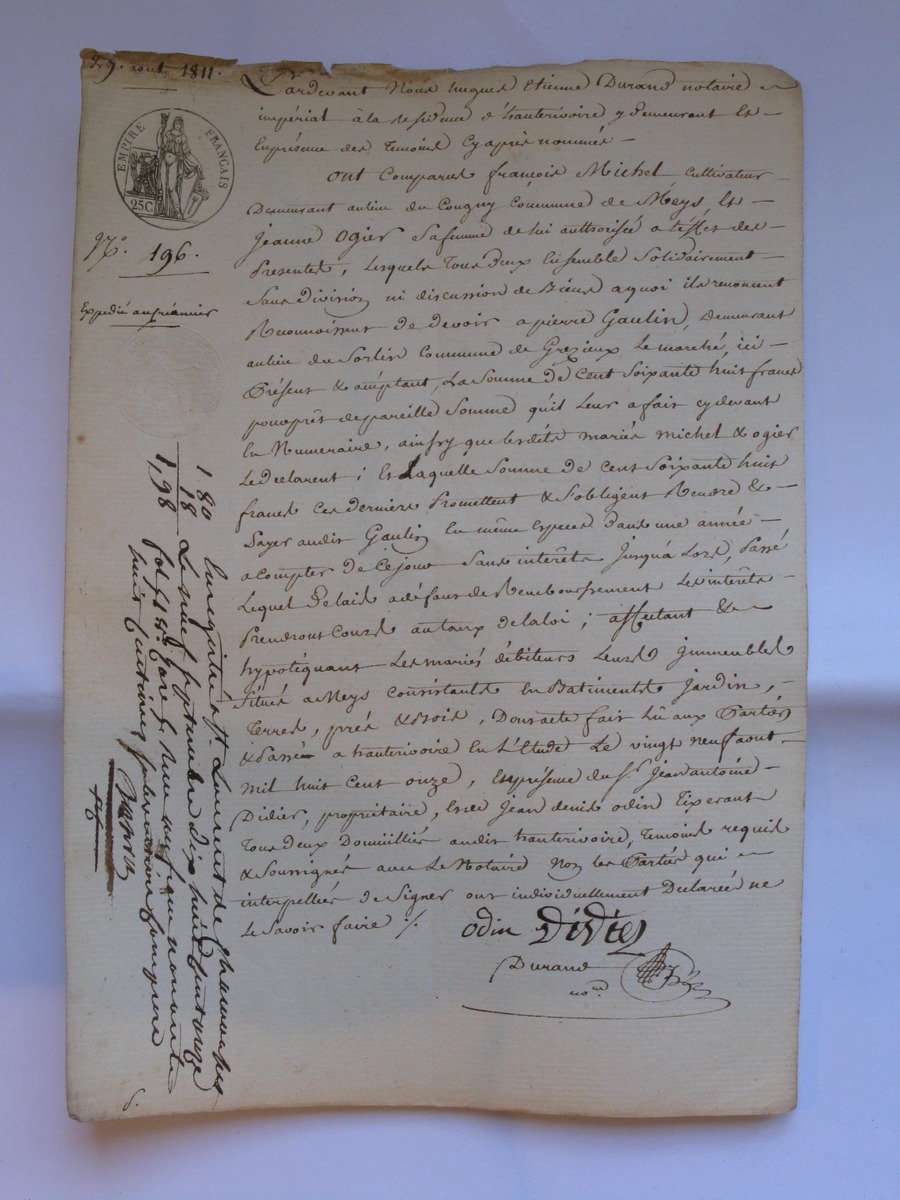 29. aout 1811.
EMPIRE FRANÇAIS
25C.
N.º 196.
Expedié au créancier
Pardevant Nous hugues Etienne Durand notaire
impérial à la residence d'hauterivoire y demeurant Et
Enprésence des Temoins Cy après nommés
ont Comparus françois Michel Cultivateur
Demeurant aulieu du Congny Commune de Méys, Et
Jeanne Ogier Safemme de lui authorisée a l'effet des
Presentes, Lesquels Tous deux Ensemble Solidairement
Sans Division ni discussion de Biens aquoi ils renoncent
Reconnoissent De devoir a pierre Gaulin, Demeurant
aulieu du Sorlin Commune de Grezieux Le marché, ici
Présent & acceptant, La Somme De Cent Soixante huit francs
pour prêt de pareille Somme qu'il Leur a fait cy devant
En Numeraire, ainsy que lesdits mariés michel & ogier
Le declarent; Et Laquelle Somme De Cent Soixante huit
francs Ces derniers Promettent & S'obligent Rendre &
Payer audit Gaulin En même Especes Dans une année
a compter De Ce jour Sans interêts Jusqu'a Lors, Passé
Lequel Delaid a défaut de Remboursement Les interêts
Prendront Cours au taux de la loi; affectant &
hypotéquant Les mariés débiteurs Leurs Jmmeubles
Situés a Meys Consistants En Batiments Jardin,
Terres, prés & Bois, Dont acte fait Lû aux Parties
& Passé a hauterivoire En L'Etude Le vingt neuf aout
mil huit Cent onze, En présence du Sr. Jean antoine
Didier, propriétaire, Et de Jean denis odin Tixerant
Tous deux Domiciliés audit hauterivoire, Temoins requis
& Soussignés avec Le Notaire Non les Parties qui
interpellées de Signer ont individuellement Declarée ne
Le Savoir faire ./.
odin Didier
Durand
nore.
1. 80
18
1,98
Enregistré à St. Laurent de chamousset
Le neuf septembre dix huit cent onze